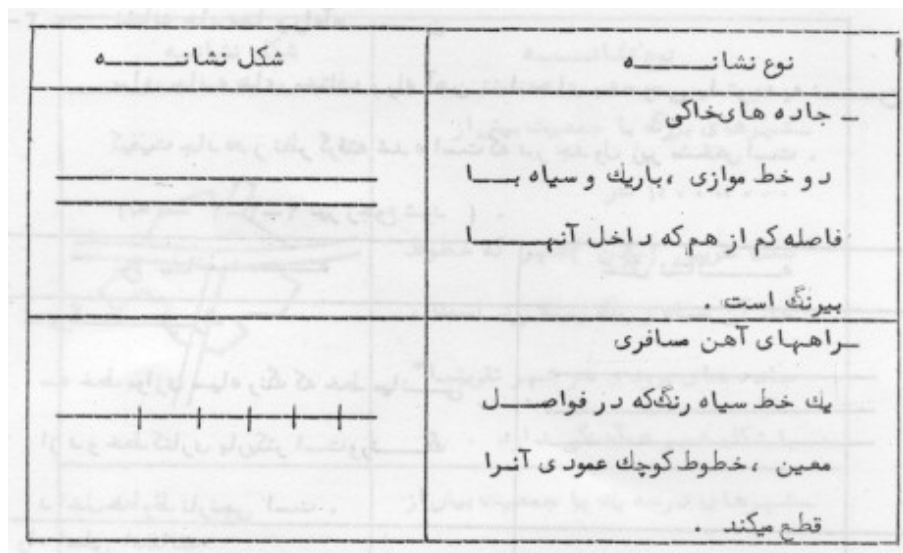 نوع نشانــــه	شكل نشانــــه
ـ جاده های‌خاكی
دو خط موازی ،باریك و سیاه بــا
فاصله كم از هم كه داخل آنهــــا
بیرنگ است .
ـراههای آهن مسافری
یك خط سیاه رنگ‌كه در فواصــل
معین ،خطوط كوچك عمودی آنـرا
قطع میكند .